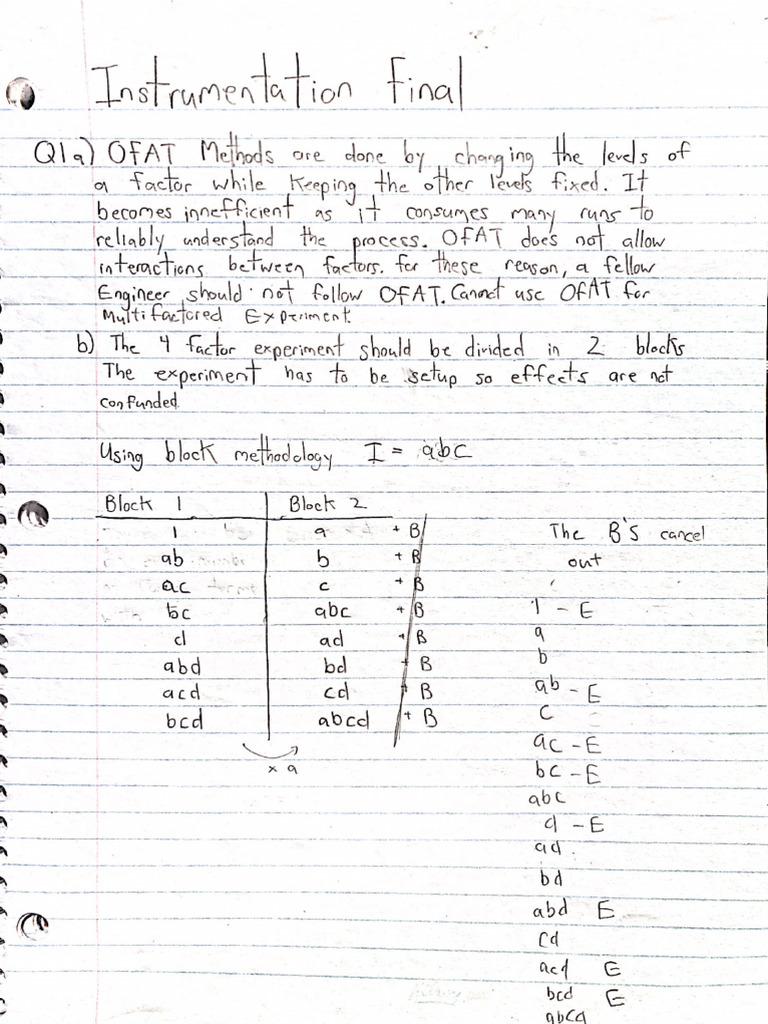 Instrumentation Final
Q1a) OFAT Methods are done by changing the levels of
a factor while keeping the other levels fixed. It
becomes innefficient as it consumes many runs to
reliably understand the process. OFAT does not allow
interactions between factors. for these reason, a fellow
Engineer should not follow OFAT. Cannot use OFAT for
Multifactored Experiment.
b) The 4 factor experiment should be divided in 2 blocks
The experiment has to be setup so effects are not
confunded.
Using block methodology I = abc
Block 1 Block 2
1 a + B
ab b + B
ac c + B
bc abc + B
d ad + B
abd bd + B
acd cd + B
bcd abcd + B
x a
The B's cancel
out
1 - E
a
b
ab - E
c
ac - E
bc - E
abc
d - E
ad
bd
abd E
cd
acd E
bcd E
abcd